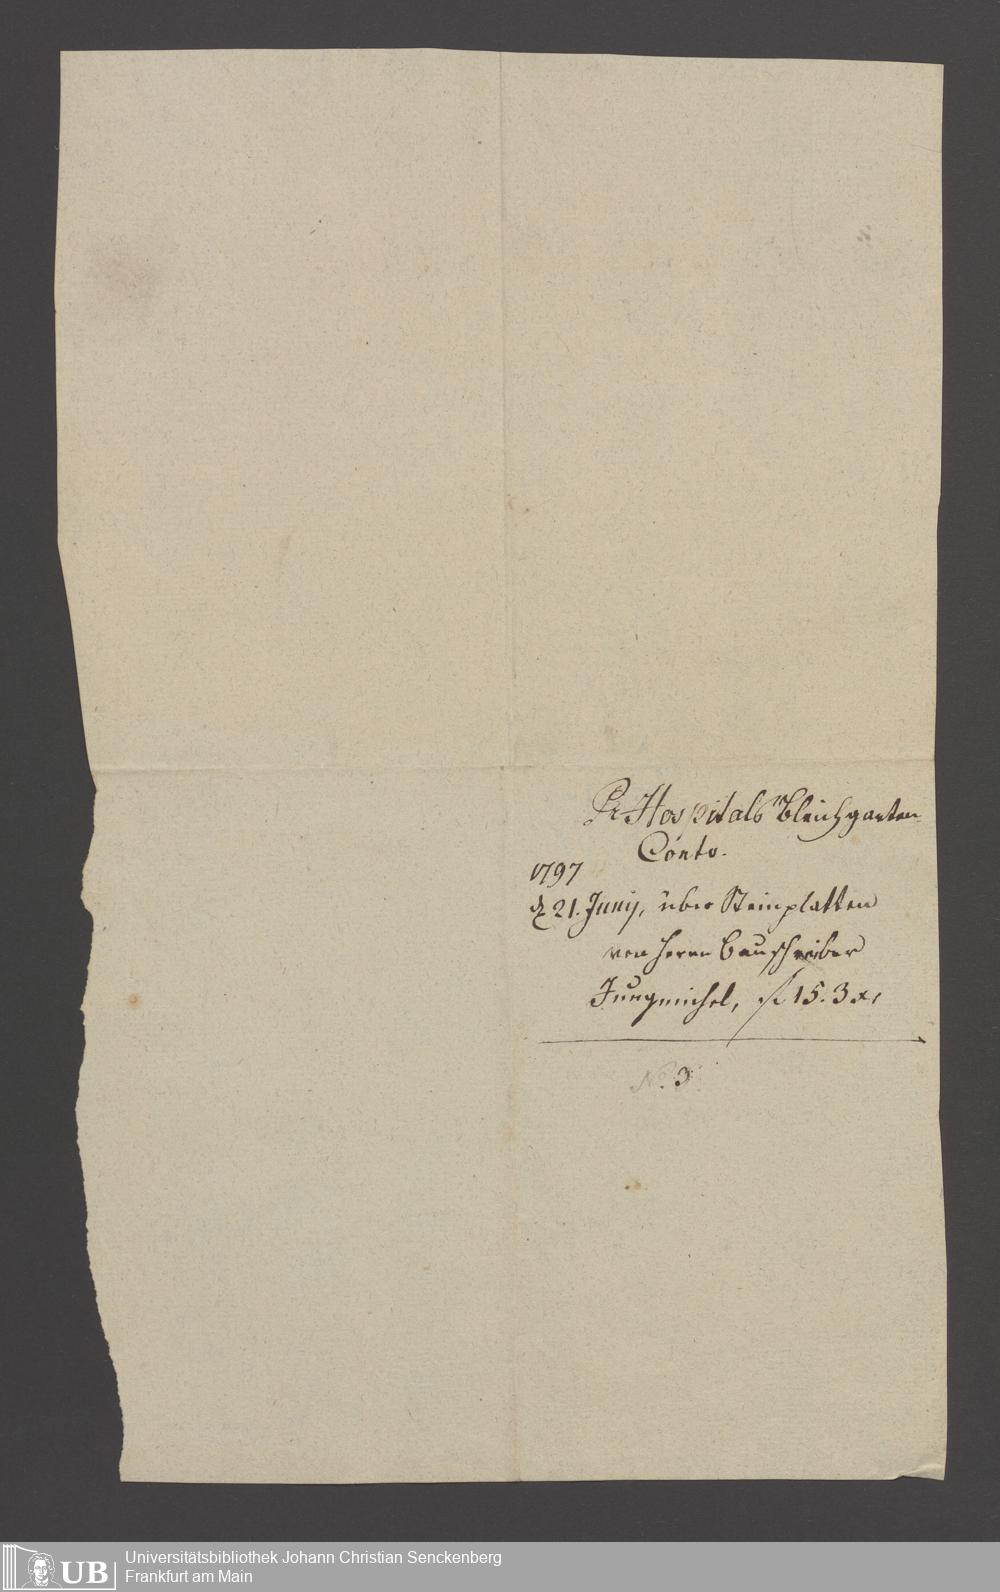 Pr Hospitals Bleichgarten-
Conto.
1797
d. 21. Junij, über Steinplatten
von Herrn Bauschreiber
Jungmichel, f 15. 3 x,
No. 3.
UB
Universitätsbibliothek Johann Christian Senckenberg
Frankfurt am Main